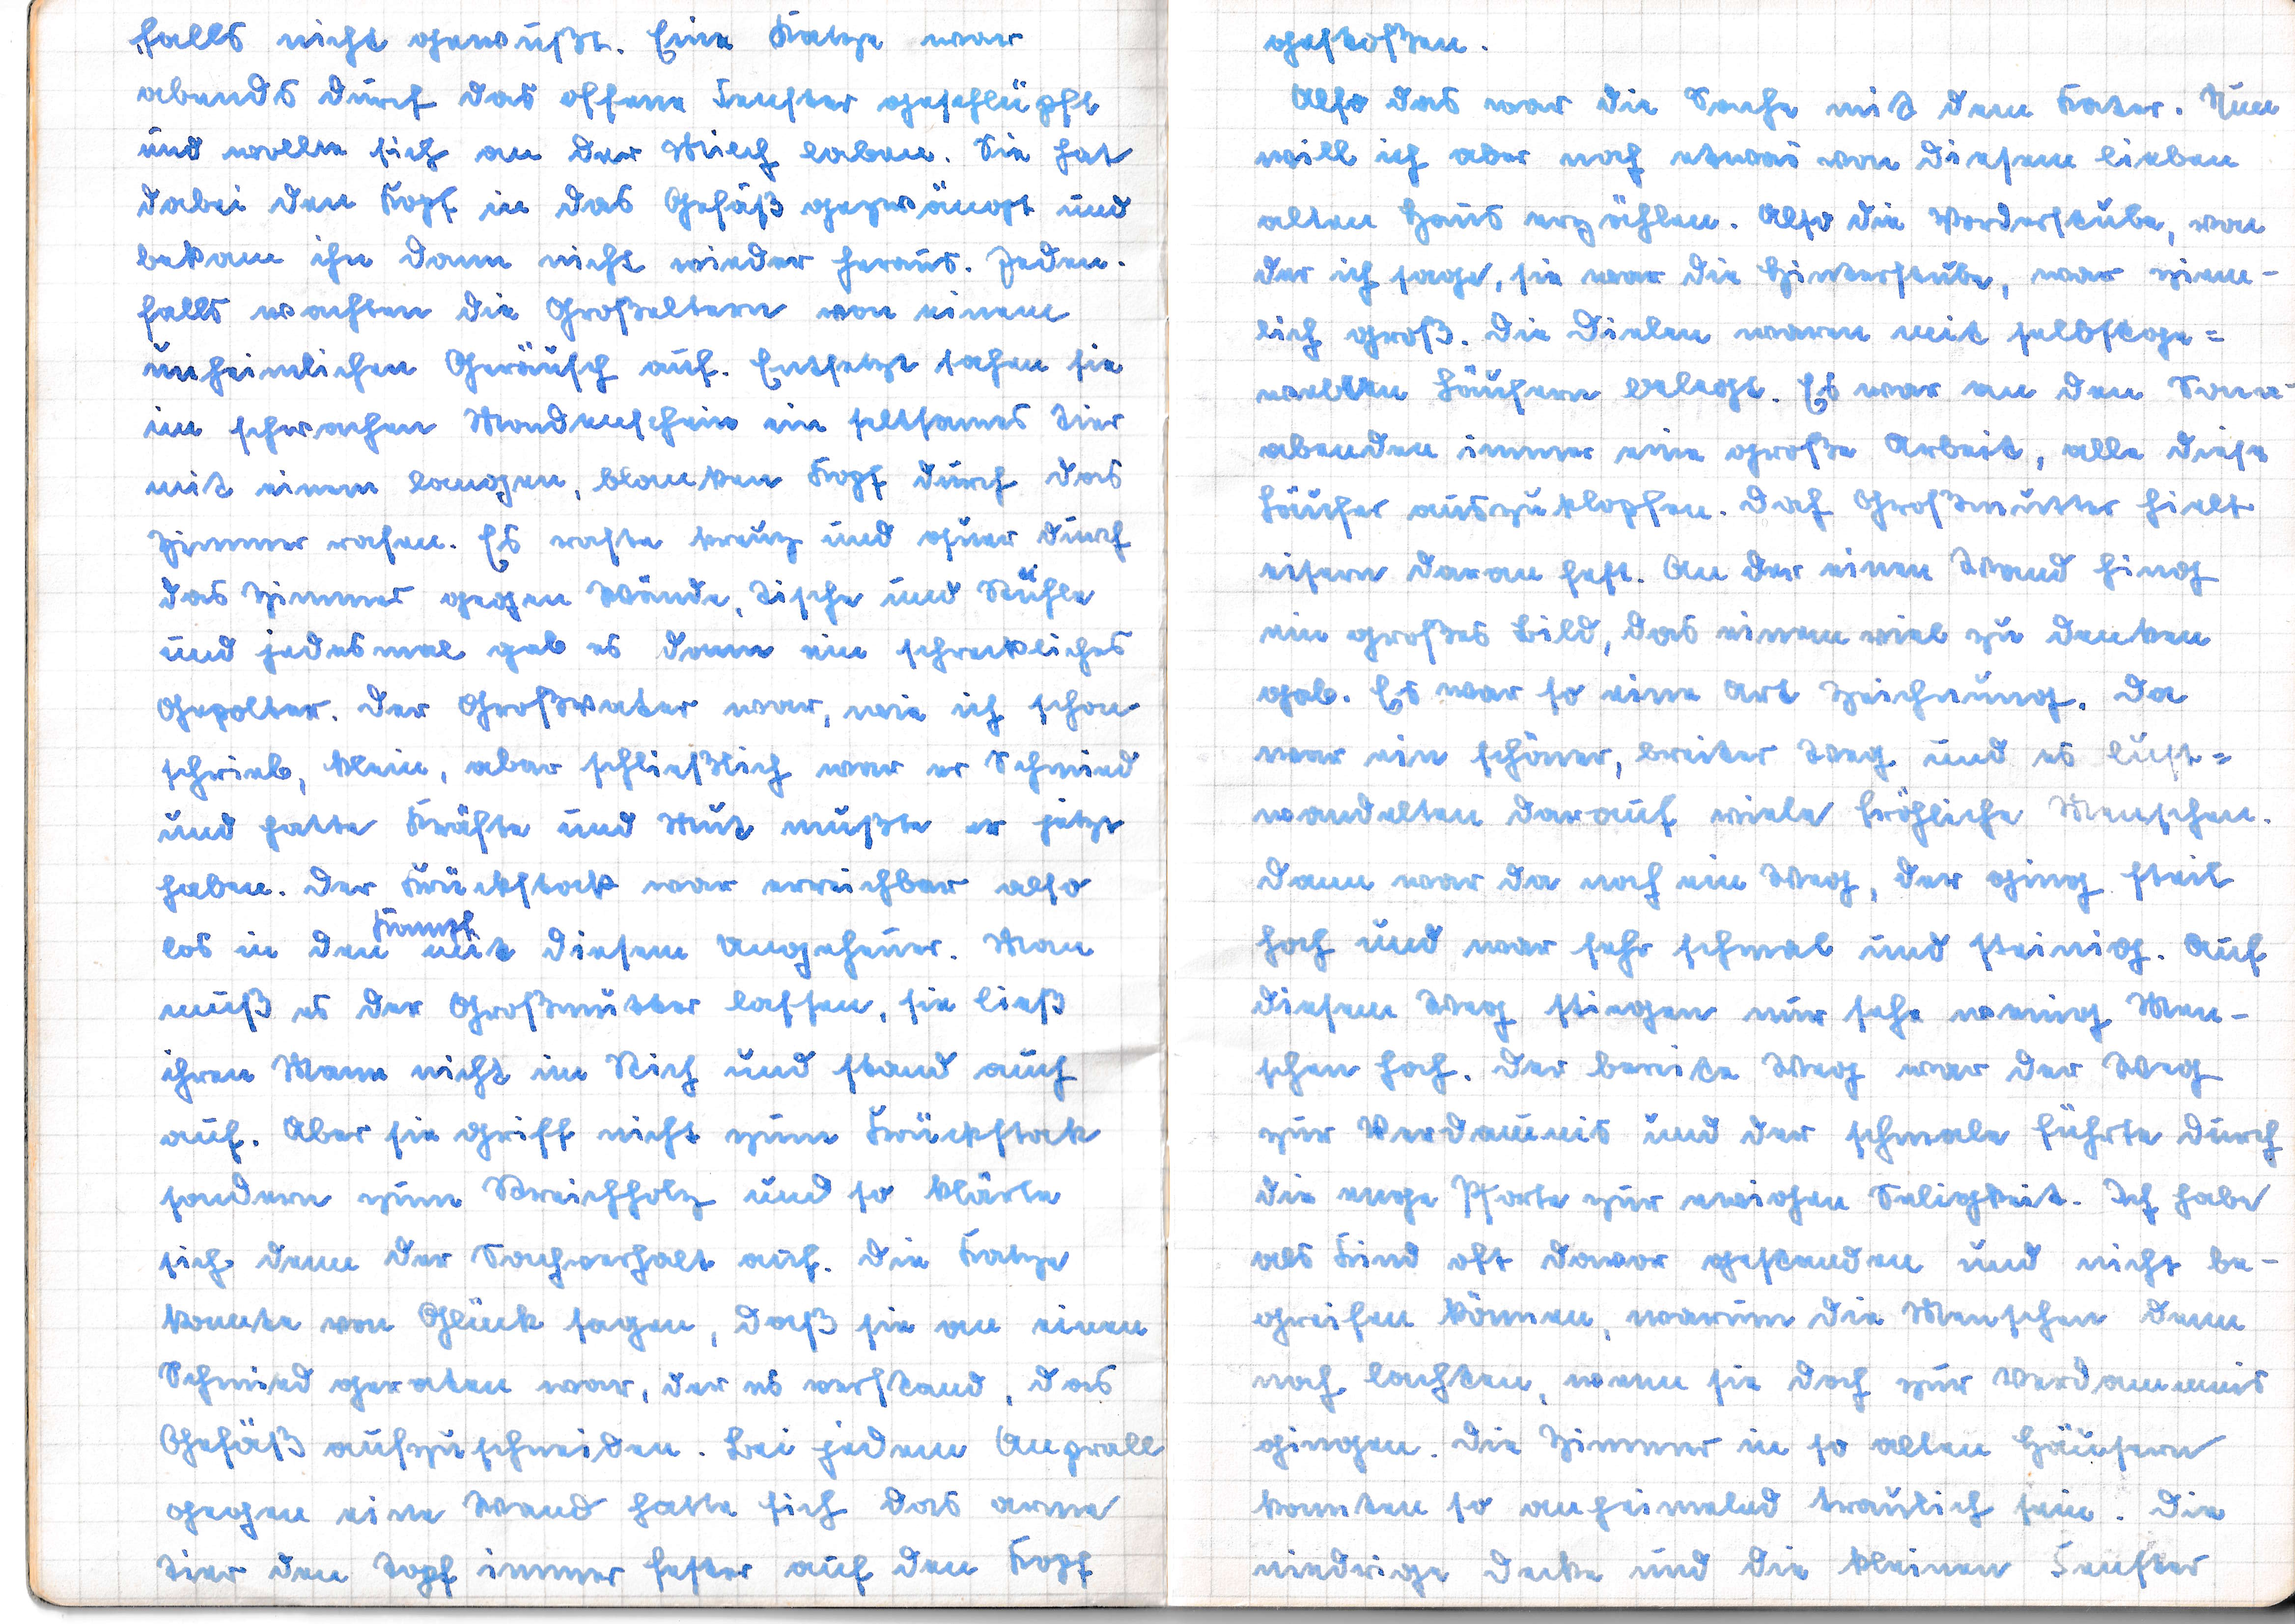 falls nicht gewußt. Eine Katze war
abends durch das offene Fenster geschlüpft
und wollte sich an der Milch laben. Sie hat
dabei den Kopf in das Gefäß gezwängt und
bekam ihn dann nicht wieder heraus. Jeden-
falls wachten die Großeltern von einem
unheimlichen Geräusch auf. Entsetzt sahen sie
im schwachen Mondenschein ein seltsames Tier
mit einem langen, blanken Kopf durch das
Zimmer rasen. Es raste kreuz und quer durch
das Zimmer gegen Wände, Tische und Stühle
und jedesmal gab es dann ein schreckliches
Gepolter. Der Großvater war, wie ich schon
schrieb, klein, aber schließlich war er Schmied
und hatte Kräfte und Mut mußte er jetzt
haben. Der Krückstock war erreichbar also
los in den Kampf mit diesem Ungeheuer. Man
muß es der Großmutter lassen, sie ließ
ihren Mann nicht im Stich und stand auch
auf. Aber sie griff nicht zum Krückstock
sondern zum Streichholz und so klärte
sich denn der Sachverhalt auf. Die Katze
konnte von Glück sagen, daß sie an einen
Schmied geraten war, der es verstand, das
Gefäß aufzuschneiden. Bei jedem Anprall
gegen eine Wand hatte sich das arme
Tier den Topf immer fester auf den Kopf
gestoßen.
Also das war die Sache mit dem Kater. Nun
will ich aber noch etwas von diesem lieben
alten Haus erzählen. Also die Vorderstube, von
der ich sage, sie war die Hinterstube, war ziem-
lich groß. Die Dielen waren mit selbstge=
webten Läufern belegt. Es war an den Sonn-
abenden immer eine große Arbeit, alle diese
Läufer auszuklopfen. Doch Großmutter hielt
eisern daran fest. An der einen Wand hing
ein großes Bild, das einem viel zu denken
gab. Es war so eine Art Zeichnung. Da
war ein schöner, breiter Weg und es lust=
wandelten darauf viele fröhliche Menschen.
Dann war da noch ein Weg, der ging steil
hoch und war sehr schmal und steinig. Auf
diesem Weg stiegen nur sehr wenig Men-
schen hoch. Der bereite Weg war der Weg
zur Verdamnis und der schmale führte durch
die enge Pforte zur ewigen Seligkeit. Ich habe
als Kind oft davor gestanden und nicht be-
greifen können, warum die Menschen denn
noch lachten, wenn sie doch zur Verdammnis
gingen. Die Zimmer in so alten Häusern
konnten so anheimelnd traulich sein. Die
niedrige Decke und die kleinen Fenster